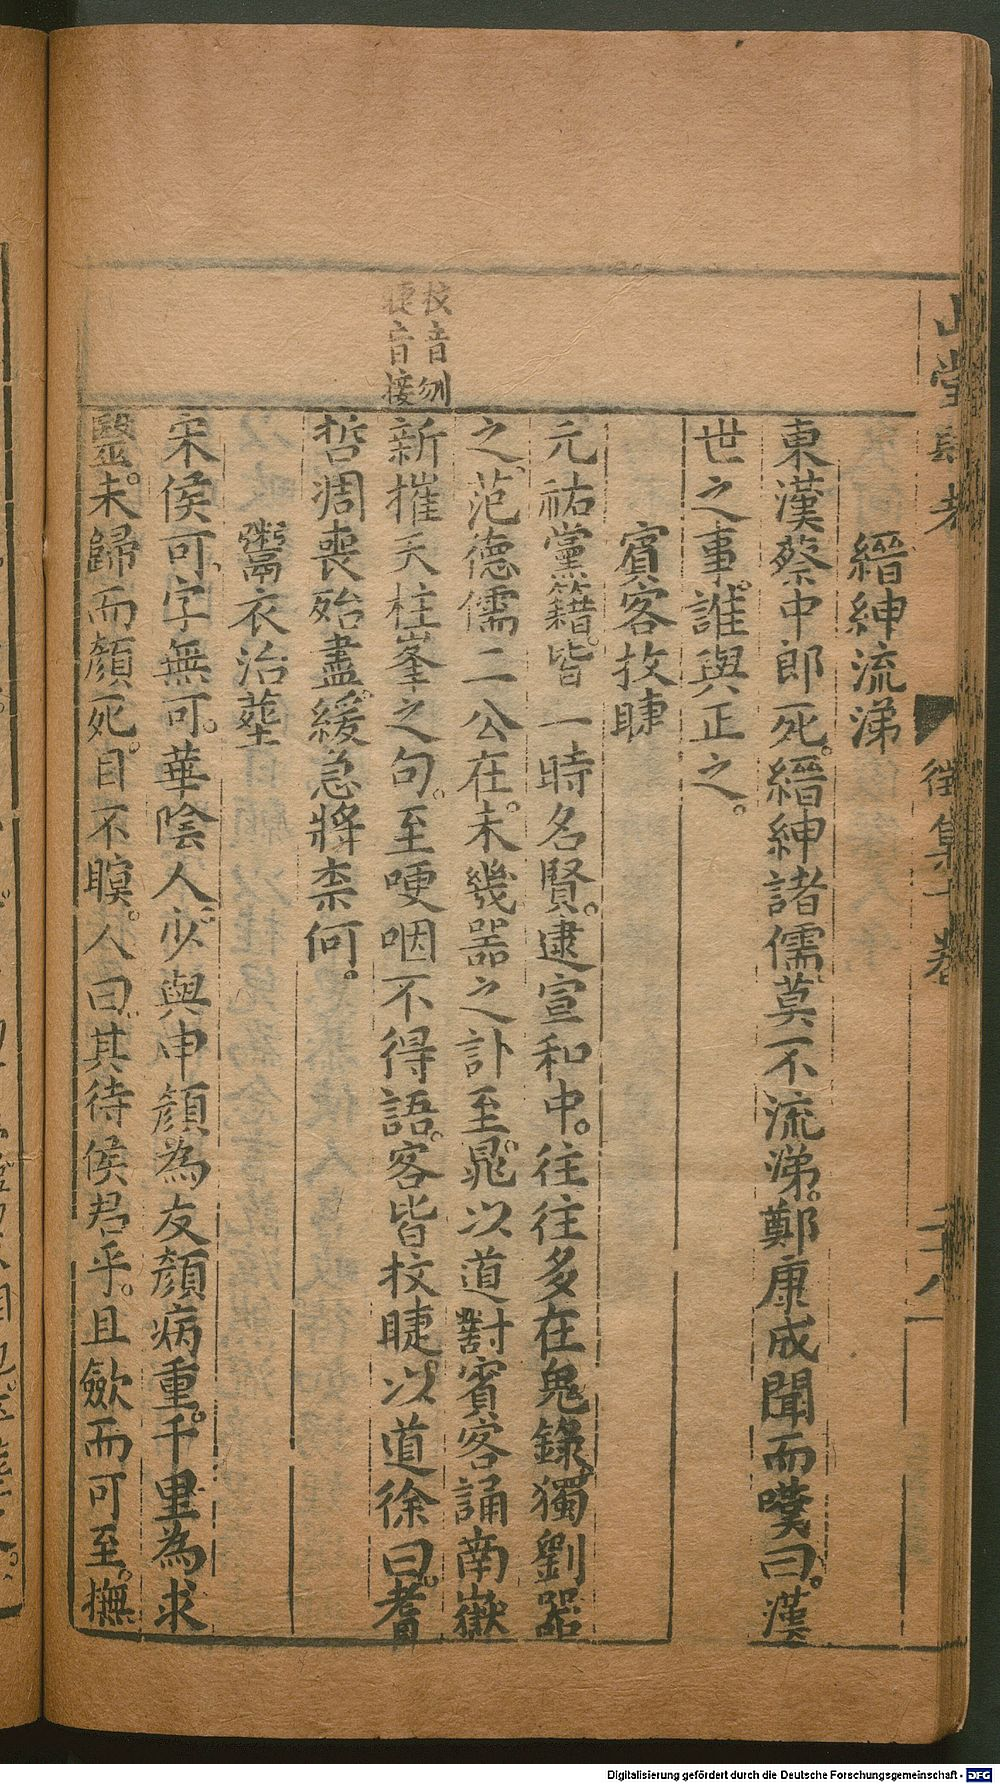 山堂肆考
徵集十卷
二十八
縉紳流涕
東漢蔡中郎死。縉紳諸儒。莫不流涕。鄭康成聞而嘆曰。漢
世之事。誰與正之。
賓客抆睫
元祐黨籍。皆一時名賢。逮宣和中。往往多在鬼錄。獨劉器
之。范德儒二公在。未幾器之訃至。晁以道對賓客誦南嶽
新摧天柱峯之句。至哽咽不得語。客皆抆睫。以道徐曰。耆
哲凋喪殆盡。緩急將柰何。
鬻衣治塟
宋侯可。字無可。華陰人。少與申顏為友。顏病重。千里為求
毉。未歸而顏死。目不瞑。人曰。其待侯君乎。且歛而可至。撫
抆音刎
睫音接
Digitalisierung gefördert durch die Deutsche Forschungsgemeinschaft - DFG